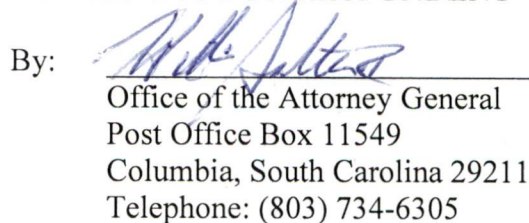 By:
Office of the Attorney General
Post Office Box 11549
Columbia, South Carolina 29211
Telephone: (803) 734-6305